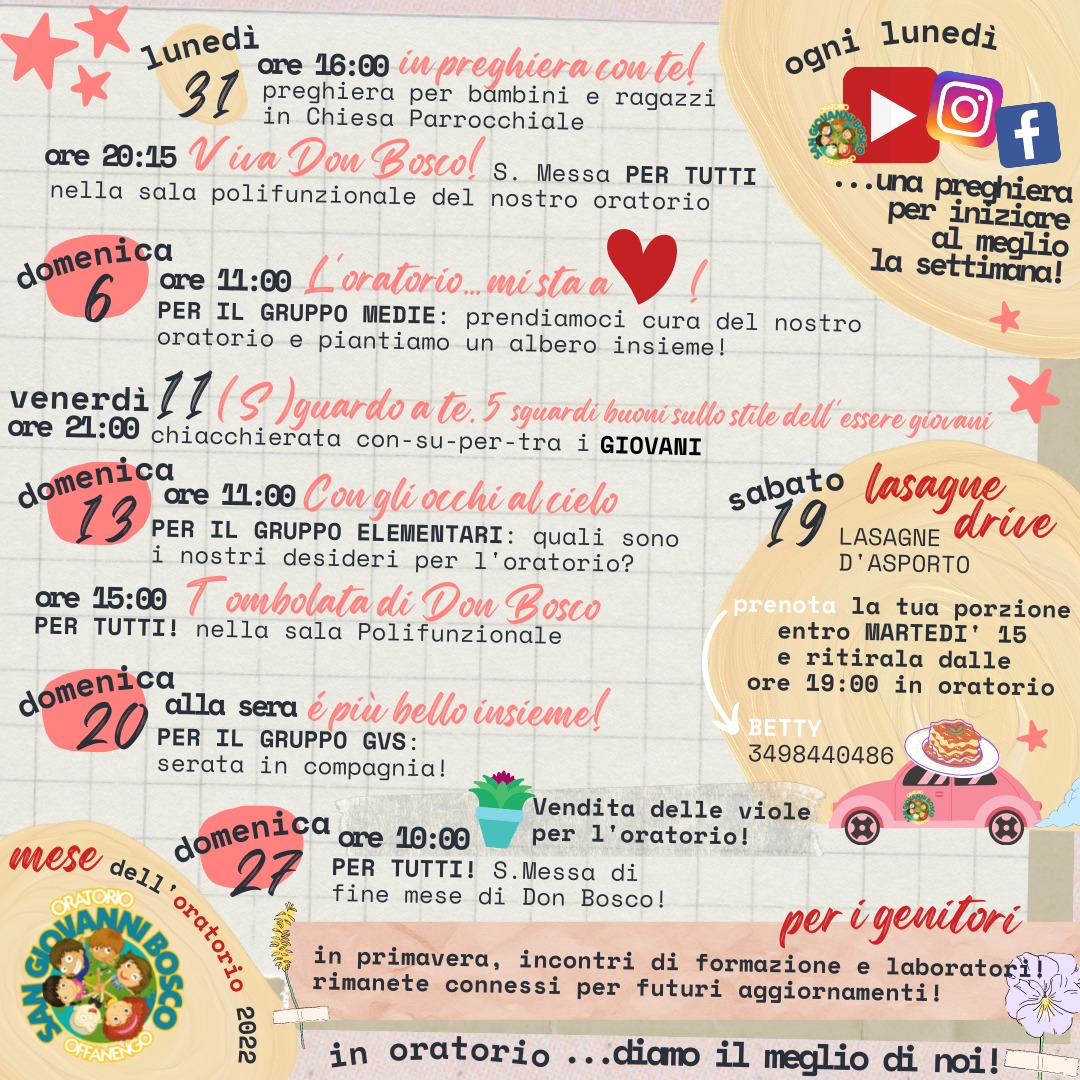 lunedì
31
ore 16:00 in preghiera con te!
preghiera per bambini e ragazzi
in Chiesa Parrocchiale
ore 20:15 Viva Don Bosco! S. Messa PER TUTTI
nella sala polifunzionale del nostro oratorio
ogni lunedì
SAN GIOVANNI BOSCO
...una preghiera
per iniziare
al meglio
la settimana!
domenica
6
ore 11:00 L'oratorio... mi sta a !
PER IL GRUPPO MEDIE: prendiamoci cura del nostro
oratorio e piantiamo un albero insieme!
venerdì 11 (S)guardo a te. 5 sguardi buoni sullo stile dell'essere giovani
ore 21:00 chiacchierata con-su-per-tra i GIOVANI
domenica
13
ore 11:00 Con gli occhi al cielo
PER IL GRUPPO ELEMENTARI: quali sono
i nostri desideri per l'oratorio?
ore 15:00 Tombolata di Don Bosco
PER TUTTI! nella sala Polifunzionale
sabato
19
lasagne
drive
LASAGNE
D'ASPORTO
prenota la tua porzione
entro MARTEDI' 15
e ritirala dalle
ore 19:00 in oratorio
BETTY
3498440486
domenica
20
alla sera é più bello insieme!
PER IL GRUPPO GVS:
serata in compagnia!
domenica
27
ore 10:00
Vendita delle viole
per l'oratorio!
PER TUTTI! S.Messa di
fine mese di Don Bosco!
mese dell'oratorio 2022
ORATORIO
SAN GIOVANNI BOSCO
OFFANENGO
per i genitori
in primavera, incontri di formazione e laboratori!
rimanete connessi per futuri aggiornamenti!
in oratorio ...diamo il meglio di noi!